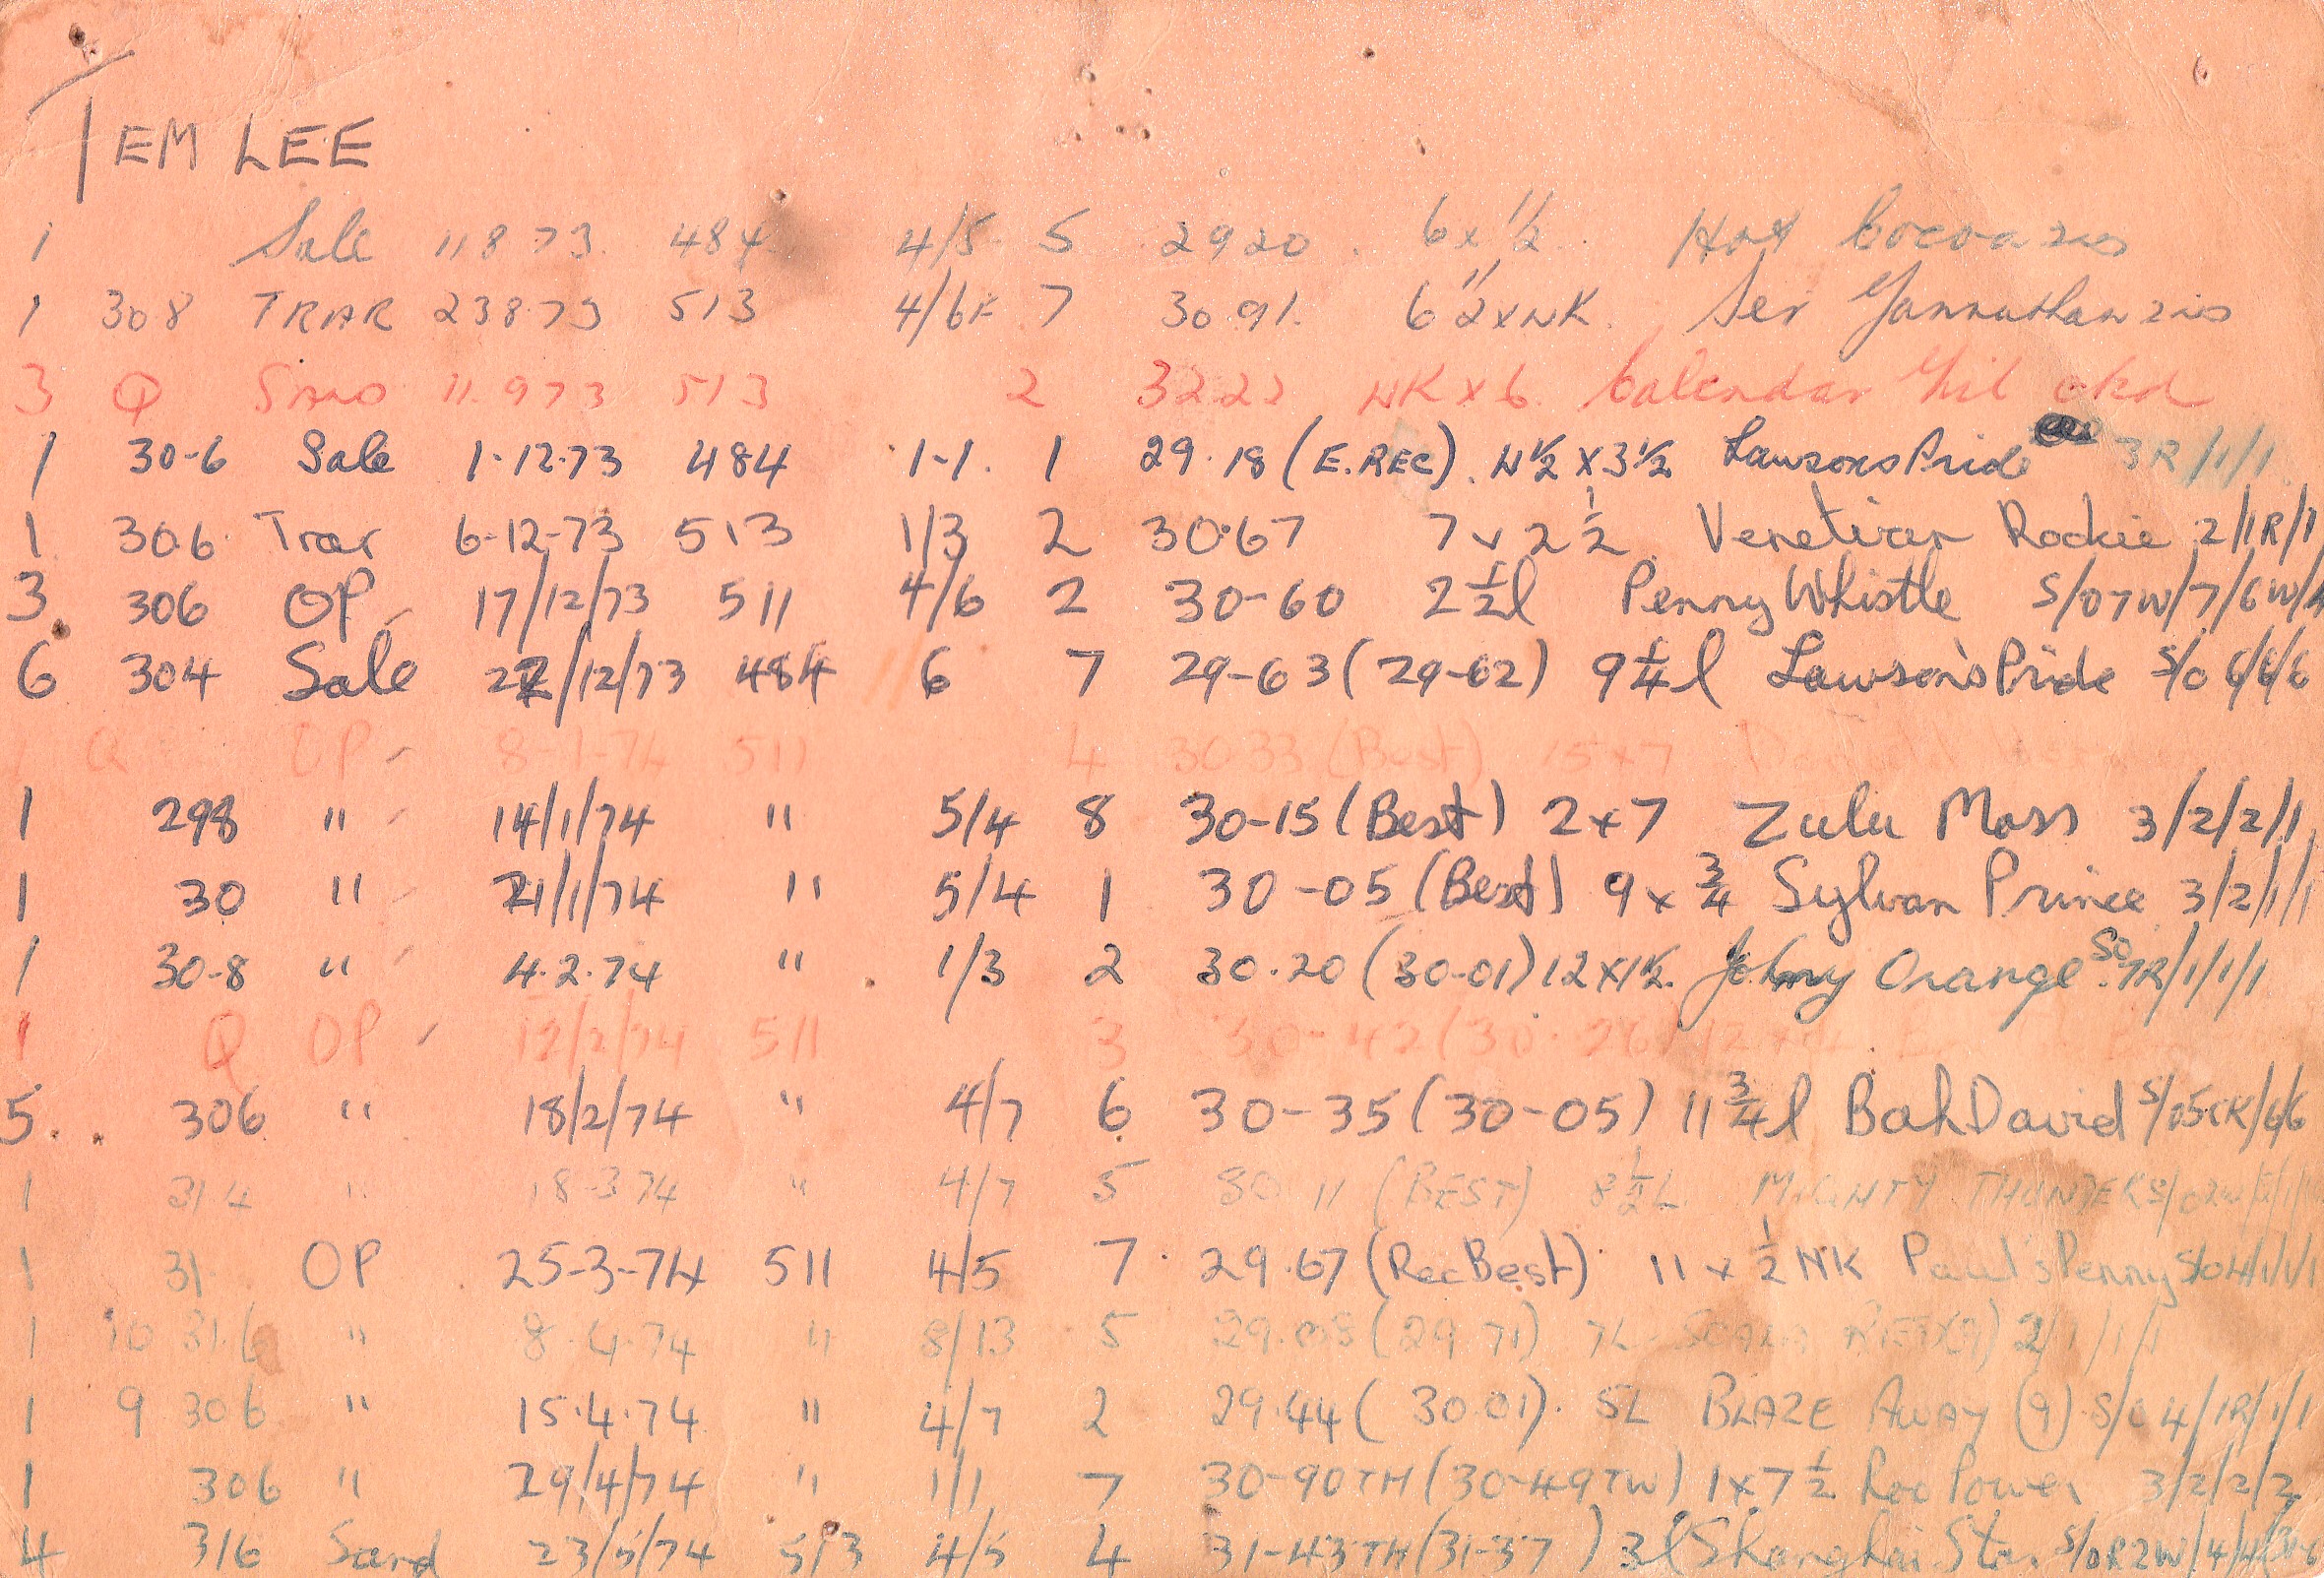 TEM LEE
1 Sale 11 8 73 484 4/5 5 29 20 6 x 1/2 Hot Cocoa
1 308 TRAR 23 8 73 513 4/6F 7 30 91. 6 1/2 x NK.
3 Q SAND 11.9 73 513 2 32 22 NK x 6 Calendar
1 30-6 Sale 1-12-73 484 1-1. 1 29.18 (E.REC). N 1/2 x 3 1/2 Lawsons Pride 3R/1/1
1 30.6 Trar 6-12-73 513 1/3 2 30.67 7 x 2 1/2 Venetian Rockie 2/1R/1
3 306 OP 17/12/73 511 4/6 2 30-60 2 1/2 l Penny Whistle S/07W/7/6W/
6 304 Sale 22/12/73 484 6 7 29-63 (29-02) 9 1/4 l Lawson's Pride S/0 6/6/6
1 Q OP - 8-1-74 511 4 30 33 (Best) 15 x 7
1 298 " 14/1/74 " 5/4 8 30-15 (Best) 2 x 7 Zulu Moss 3/2/2/1
1 30 " 21/1/74 " 5/4 1 30-05 (Best) 9 x 3/4 Sylvan Prince 3/2/1/1
1 30-8 " 4.2.74 " 1/3 2 30.20 (30-01) 12 x 1 1/2. Johnny Orange SO 7R/1/1/1
1 Q OP 12/2/74 511 3 30-42 (30.26) 12
5 306 " 18/2/74 " 4/7 6 30-35 (30-05) 11 3/4 l Bah David S/05CK/6/6
1 31 4 " 18-3 74 " 4/7 5 30 11 (BEST) 8 1/2 L MIGHTY THUNDER
1 31. OP 25-3-74 511 4/5 7. 29.67 (Rec Best) 11 x 1/2 NK Paul's Penny S/04/1/1/1
1 10 31.6 " 8.4.74 " 8/13 5 (29 71) 7L 2/1/1/1
1 9 306 " 15.4.74 " 4/7 2 29.44 (30.01). 5L BLAZE AWAY (9) S/0 4/1R/1/1
1 306 " 29/4/74 " 1/1 7 30-90 TH (30-49 TW) 1 x 7 1/2 Roo Power 3/2/2/2
4 316 Sand 23/5/74 513 4/5 4 31-43 TH (31-37) 3 l Shanghai Star S/0R2W/4/4